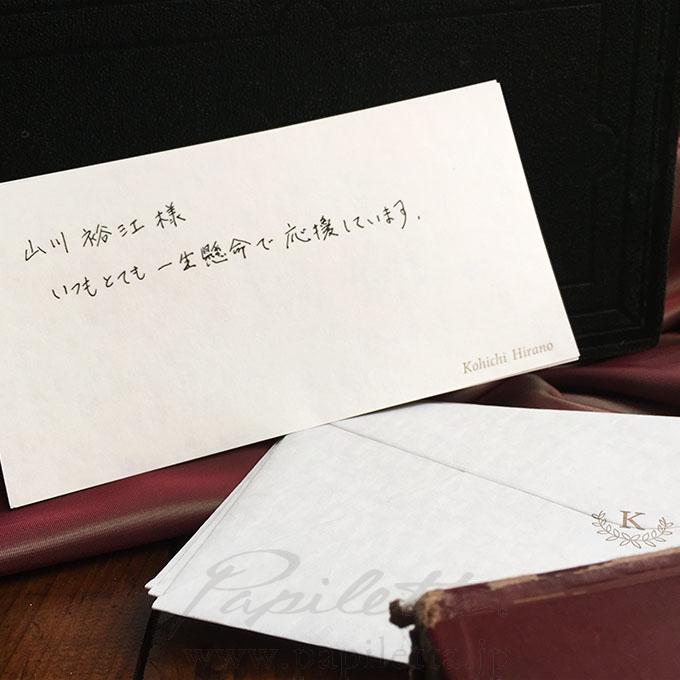 山川 裕江 様
いつもとても 一生懸命で 応援しています.
Kohichi Hirano
K
Papiletta
www.papiletta.jp